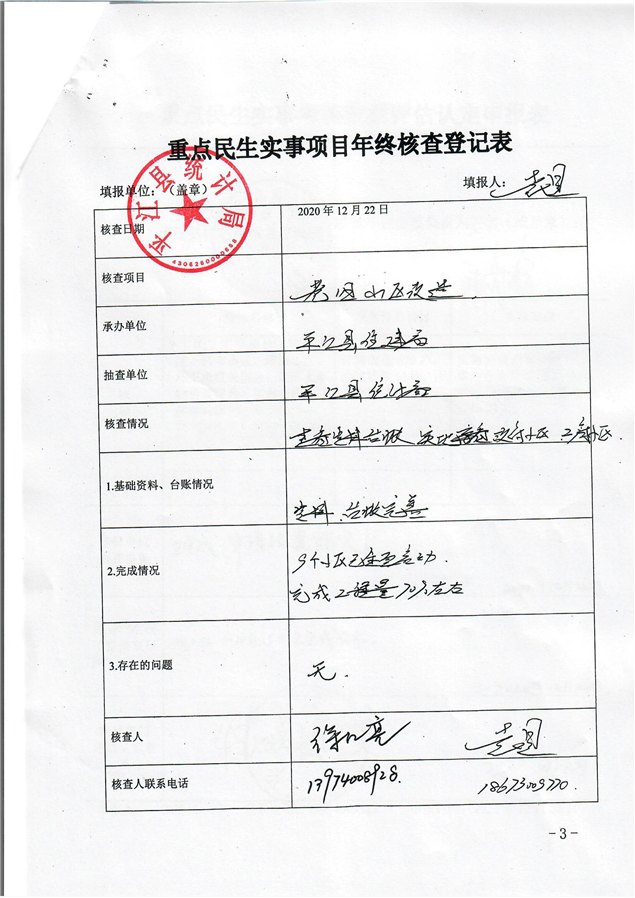 重点民生实事项目年终核查登记表
平江县统计局
4306260000888
填报单位：（盖章）
填报人：
核查日期
2020年12月22日
核查项目
老旧小区改造
承办单位
平江县住建局
抽查单位
平江县统计局
核查情况
查看资料台账
1.基础资料、台账情况
资料、台账完善
2.完成情况
9个小区已全面启动.
完成工程量70%左右
3.存在的问题
无.
核查人
核查人联系电话
13974008928.
18673009770.
-3-